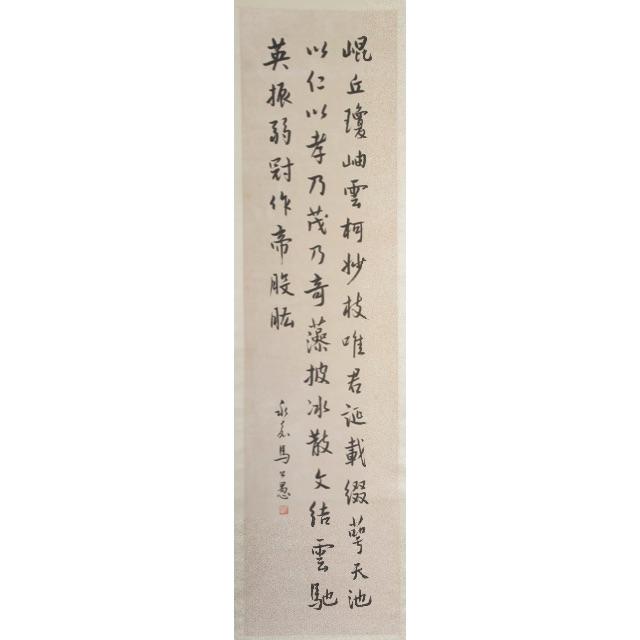 崐丘瓊岫雲柯妙枝唯君誕載綴萼天池
以仁以孝乃茂乃奇藻披冰散文結雲馳
英振弱冠作帝股肱
永嘉馬公愚